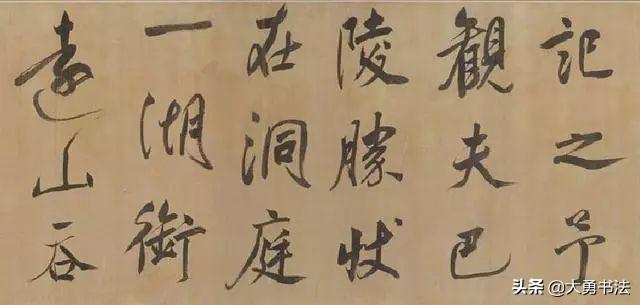 記之予
觀夫巴
陵勝狀
在洞庭
一湖銜
遠山吞
头条 @大勇书法